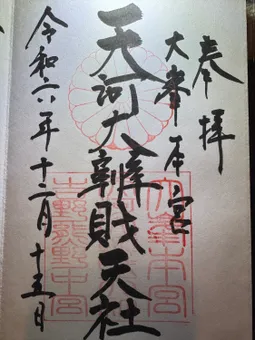 奉拝
大峯本宮
天河大辨財天社
令和六年十二月十五日
大峯本宮
吉野熊野中宮